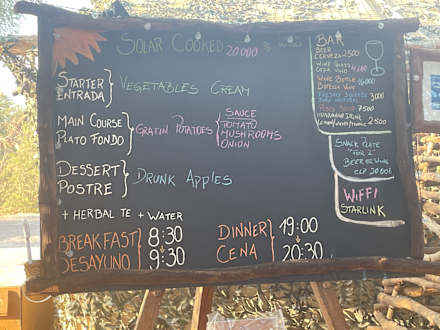 SOLAR COOKED 20000
STARTER
ENTRADA
VEGETABLES CREAM
MAIN COURSE
PLATO FONDO
GRATIN POTATOES
SAUCE
TOMATO
MUSHROOMS
ONION
DESSERT
POSTRE
DRUNK APPLES
+ HERBAL TE + WATER
BREAKFAST
DESAYUNO
8:30
9:30
DINNER
CENA
19:00
20:30
BAR
BEER
CERVEZA 2500
WINE GLASS
COPA VINO
WINE BOTTLE
BOTELLA VINO
3000
7500
2500
SNACK PLATE
"FOR 2"
BEER OR WINE
CLP 20.000
WIFFI
STARLINK